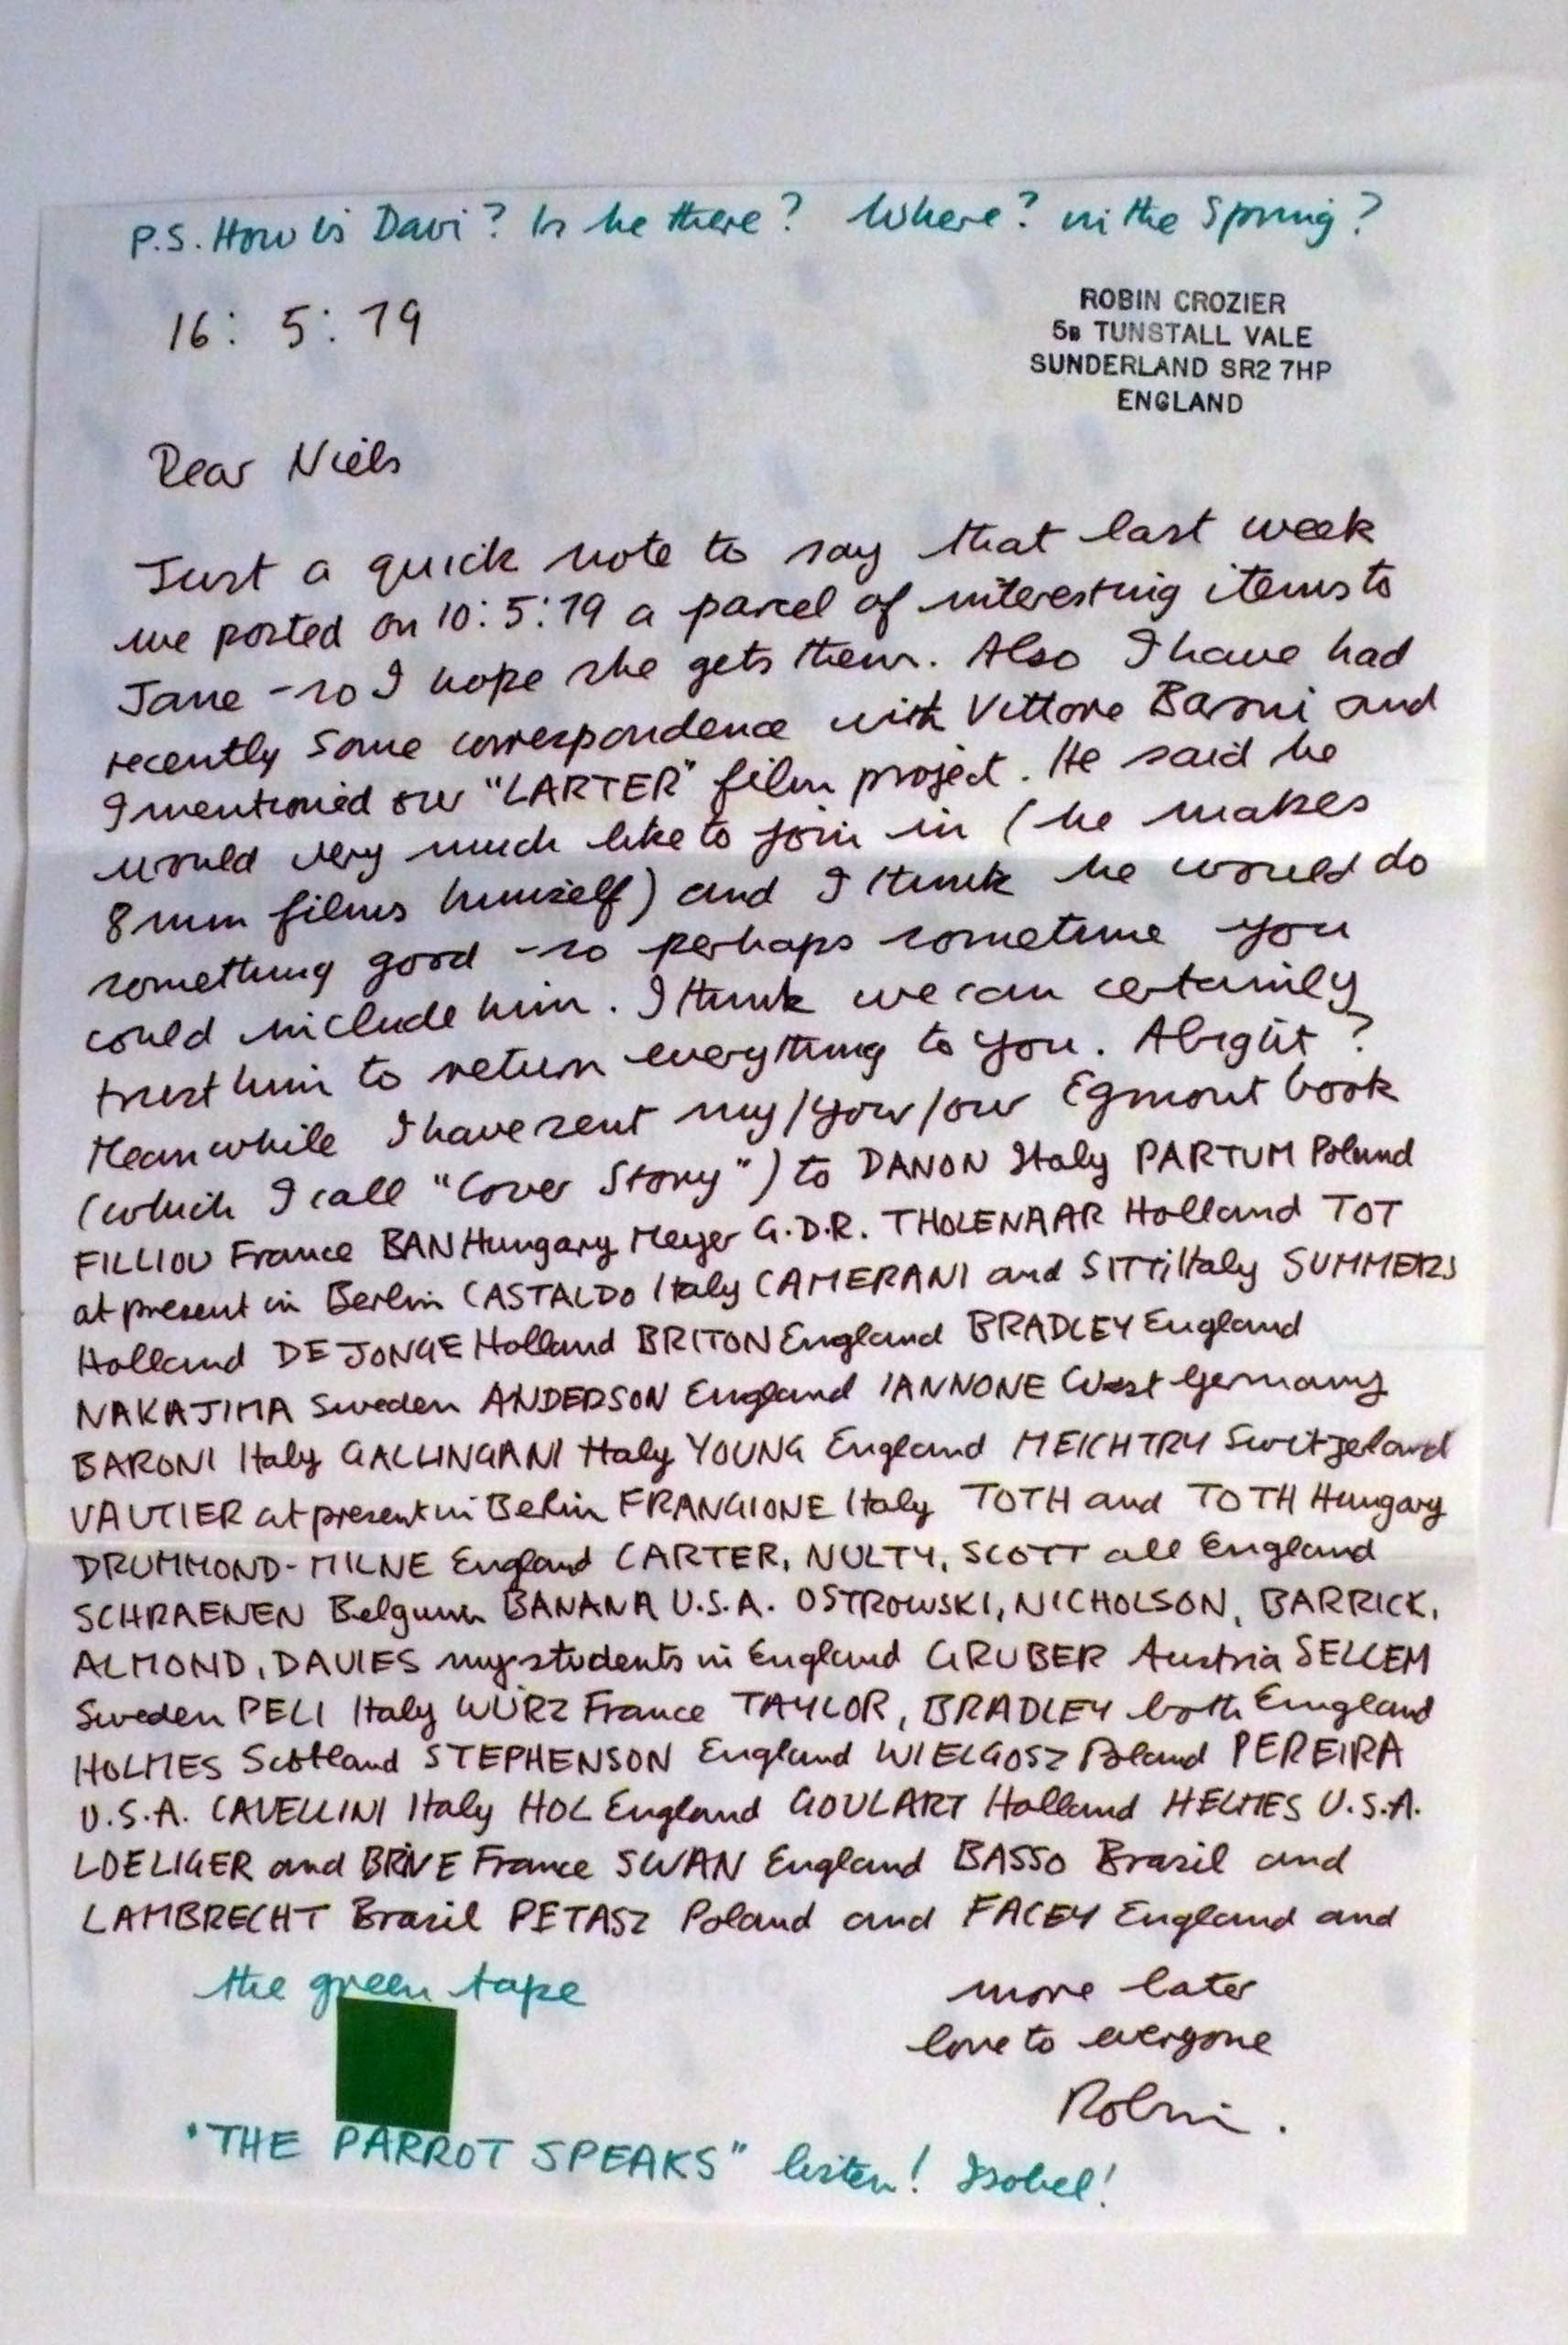 P.S. How is Davi? Is he there? Where? in the Spring?
16: 5: 79
ROBIN CROZIER
5B TUNSTALL VALE
SUNDERLAND SR2 7HP
ENGLAND
Dear Niels
Just a quick note to say that last week
we posted on 10:5:79 a parcel of interesting items to
Jane - so I hope she gets them. Also I have had
recently some correspondence with Vittore Baroni and
I mentioned our "LARTER" film project. He said he
would very much like to join in (he makes
8mm films himself) and I think he would do
something good - so perhaps sometime you
could include him. I think we can certainly
trust him to return everything to you. Alright?
Meanwhile I have sent my/your/our Egmont book
(which I call "Cover Story") to DANON Italy PARTUM Poland
FILLIOU France BAN Hungary Meyer G.D.R. THOLENAAR Holland TOT
at present in Berlin CASTALDO Italy CAMERANI and SITTI Italy SUMMERS
Holland DE JONGE Holland BRITON England BRADLEY England
NAKAJIMA Sweden ANDERSON England IANNONE West Germany
BARONI Italy GALLINGANI Italy YOUNG England MEICHTRY Switzerland
VAUTIER at present in Berlin FRANGIONE Italy TOTH and TOTH Hungary
DRUMMOND-MILNE England CARTER, NULTY, SCOTT all England
SCHRAENEN Belgium BANANA U.S.A. OSTROWSKI, NICHOLSON, BARRICK,
ALMOND, DAVIES my students in England GRUBER Austria SELLEM
Sweden PELI Italy WÜRZ France TAYLOR, BRADLEY both England
HOLMES Scotland STEPHENSON England WIELGOSZ Poland PEREIRA
U.S.A. CAVELLINI Italy HOL England GOULART Holland HELMES U.S.A.
LOELIGER and BRIVE France SWAN England BASSO Brasil and
LAMBRECHT Brasil PETASZ Poland and FACEY England and
the green tape
more later
love to everyone
Robin.
"THE PARROT SPEAKS" listen! Isobel!